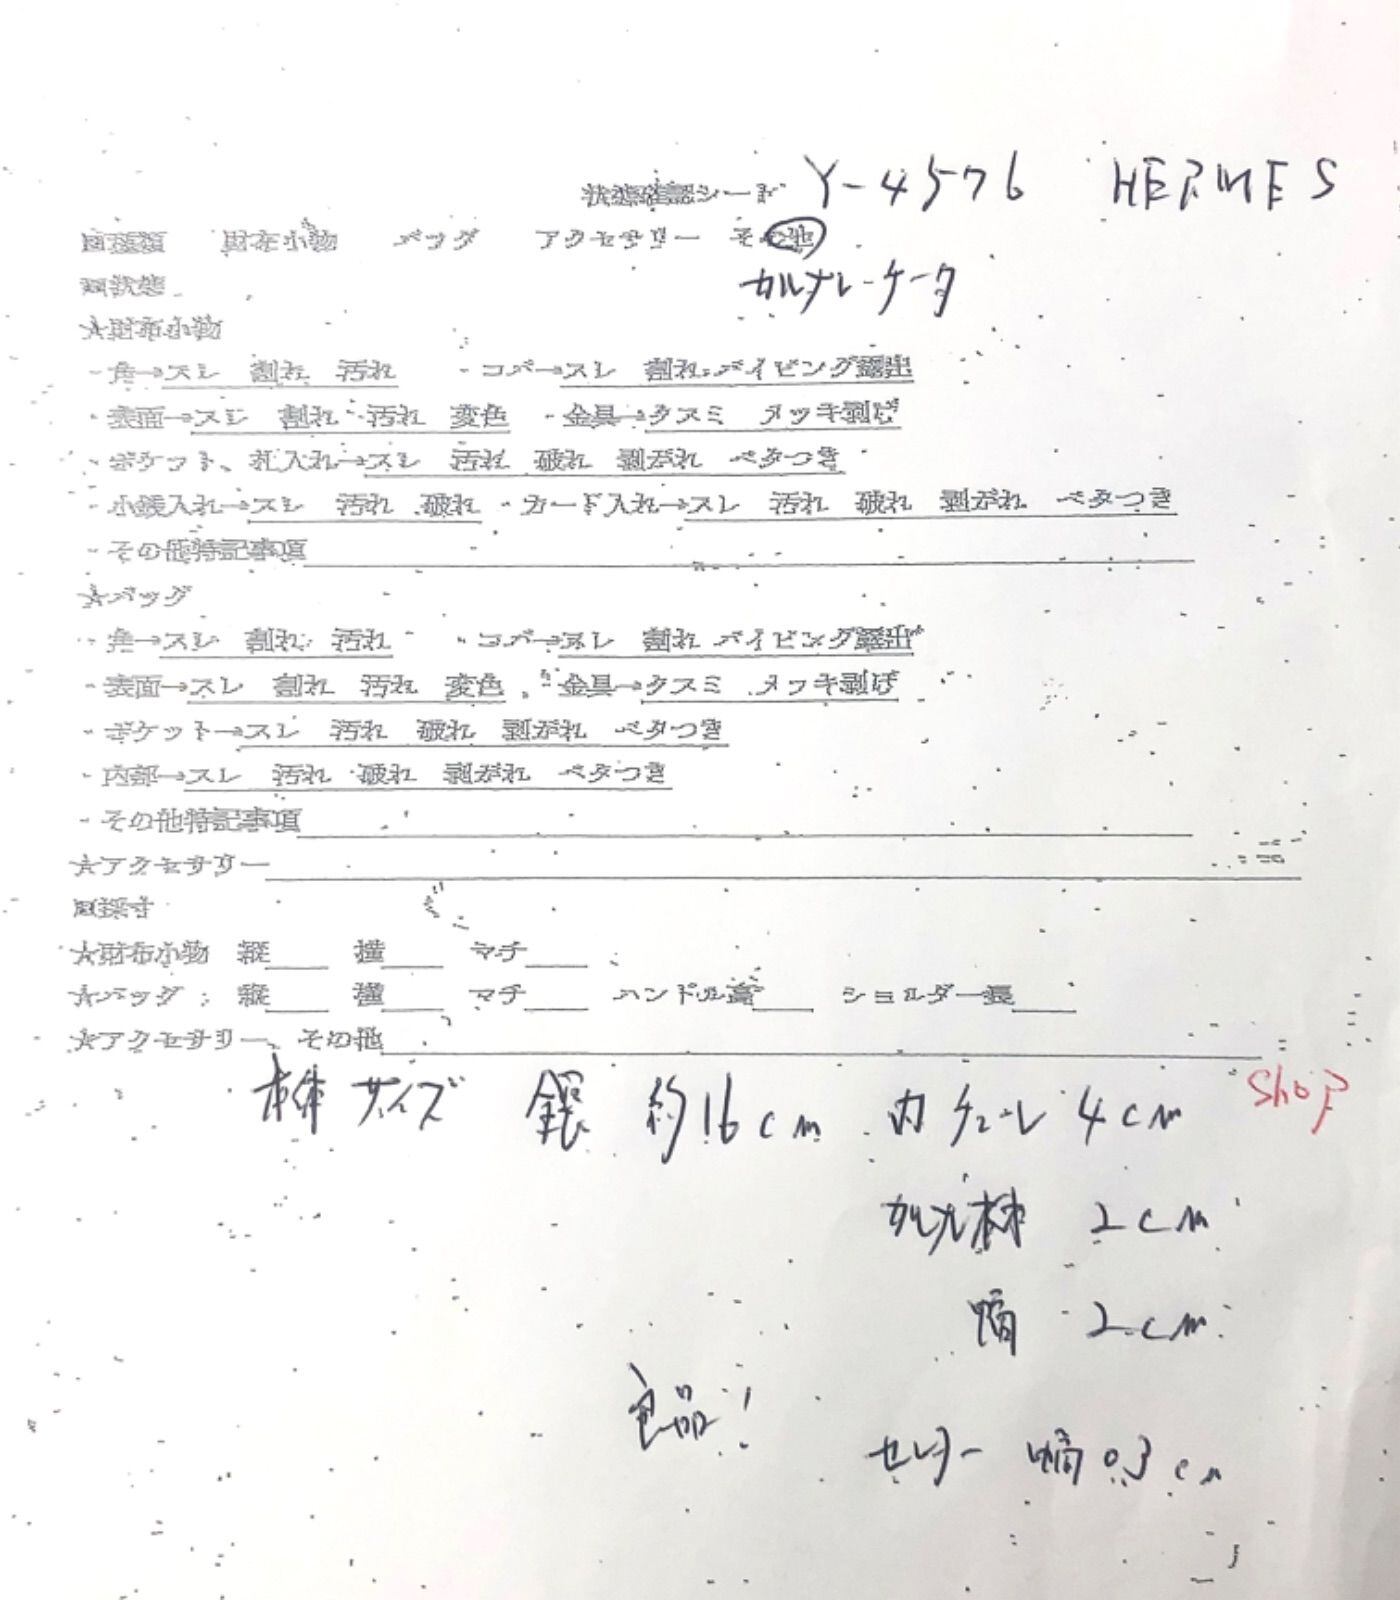 状態確認シート Y-4576 HERMES
□種類 財布小物 バッグ アクセサリー その他
□状態 カルナレーケータ
★財布小物
・角→スレ 割れ 汚れ ・コバ→スレ 割れ パイピング露出
・表面→スレ 割れ 汚れ 変色 ・金具→クスミ メッキ剥げ
・ポケット、札入れ→スレ 汚れ 破れ 剥がれ ベタつき
・小銭入れ→スレ 汚れ 破れ ・カード入れ→スレ 汚れ 破れ 剥がれ ベタつき
・その他特記事項
★バッグ
・角→スレ 割れ 汚れ ・コバ→スレ 割れ パイピング露出
・表面→スレ 割れ 汚れ 変色 ・金具→クスミ メッキ剥げ
・ポケット→スレ 汚れ 破れ 剥がれ ベタつき
・内部→スレ 汚れ 破れ 剥がれ ベタつき
・その他特記事項
★アクセサリー
□採寸
★財布小物 縦 横 マチ
★バッグ: 縦 横 マチ ハンドル高 ショルダー長
★アクセサリー、その他
本体サイズ 約16cm 内 4cm
shop
2cm
幅 2cm
良品!
センター 幅0.3cm